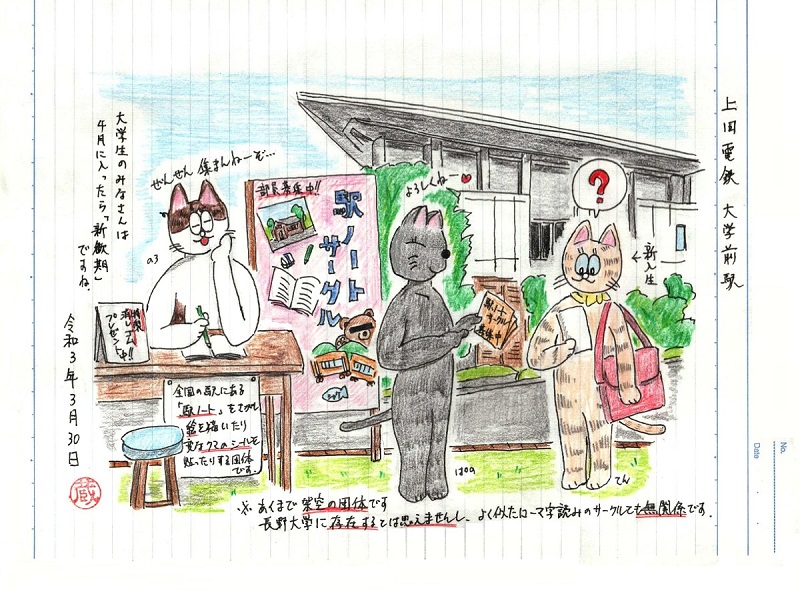 上田電鉄 大学前駅
大学生のみなさんは
4月に入ったら「新歓期」
ですね。
令和3年3月30日
蔵
ぜんぜん 集まんねーぞ…
部員募集中!!
駅ノート
サークル
よろしくねー
?
←新入生
駅ノート
サークル
募集中
プレゼント中!!
全国の駅にある
「駅ノート」をさがし
絵を描いたり
変なクマのシールを
貼ったりする団体
です。
のろ
ぱの
てん
※ あくまで架空の団体です
長野大学に存在するとは思えませんし、よく似たローマ字読みのサークルとも無関係です。
No.
Date